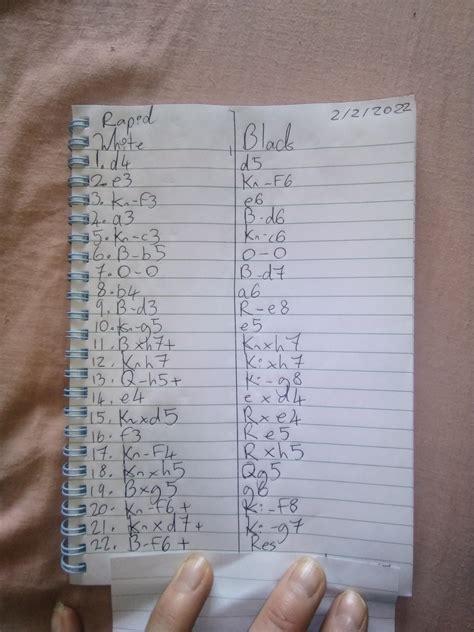 Raped 2/2/2022
White Black
1. d4 d5
2. e3 Kn-F6
3. Kn-F3 e6
2. a3 B-d6
5. Kn-c3 Kn-c6
6. B-b5 0-0
7. 0-0 B-d7
8. b4 a6
9. B-d3 R-e8
10. Kn-g5 e5
11. Bxh7+ Knxh7
12. Knh7 Ki-xh7
13. Q-h5+ Ki-g8
14. e4 exd4
15. Knxd5 Rxe4
16. f3 Re5
17. Kn-F4 Rxh5
18. Knxh5 Qg5
19. Bxg5 g6
20. Kn-F6+ Ki-F8
21. Knxd7+ Ki-g7
22. B-F6+ Res